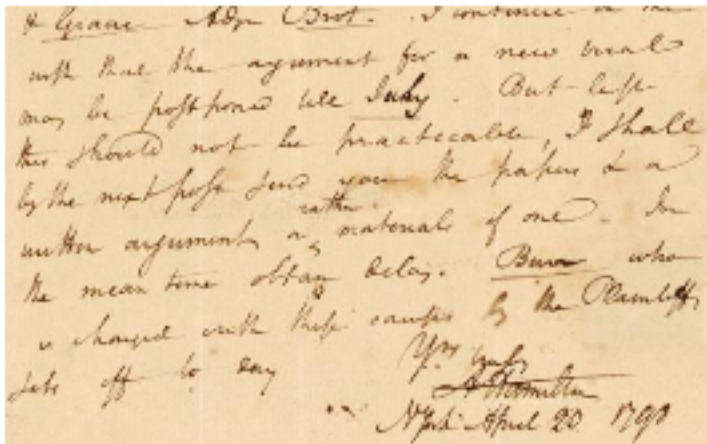 & Grace Adsr Brot. I continue in the
wish that the argument for a new trial
may be postponed till July. But lest
this should not be practicable, I shall
by the next post send you the papers & a
written argument or rather materials of one. In
the mean time obtain delay. Burr who
is charged with these causes by the Plaintiffs
sets off to day
Yrs truly
A Hamilton
N York April 20 1798